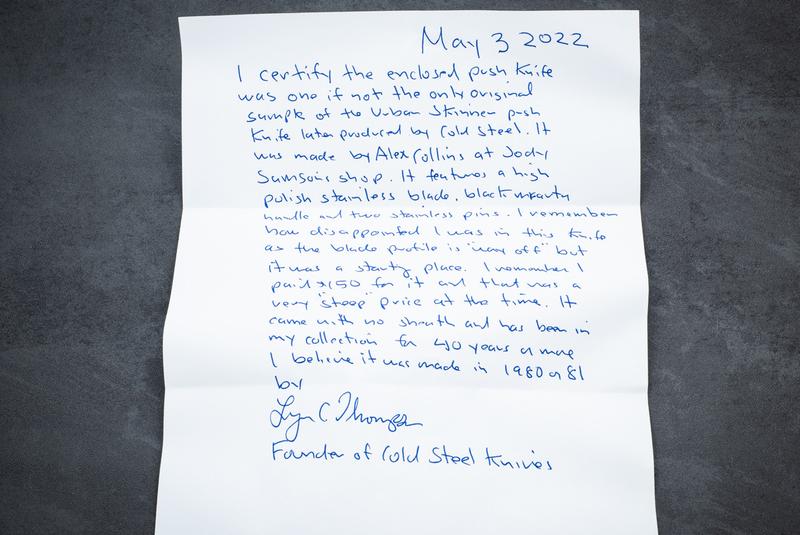 May 3 2022
I certify the enclosed push knife
was one if not the only original
sample of the Urban Skinner push
Knife later produced by Cold Steel. It
was made by Alex Collins at Jody
Samson's shop. It features a high
polish stainless blade, black micarta
handle and two stainless pins. I remember
how disappointed I was in this knife
as the blade profile is "way off" but
it was a starty place. I remember I
paid $150 for it and that was a
very "steep" price at the time. It
came with no sheath and has been in
my collection for 40 years or more
I believe it was made in 1980 or 81
by
Lynn C Thompson
Founder of Cold Steel Knives